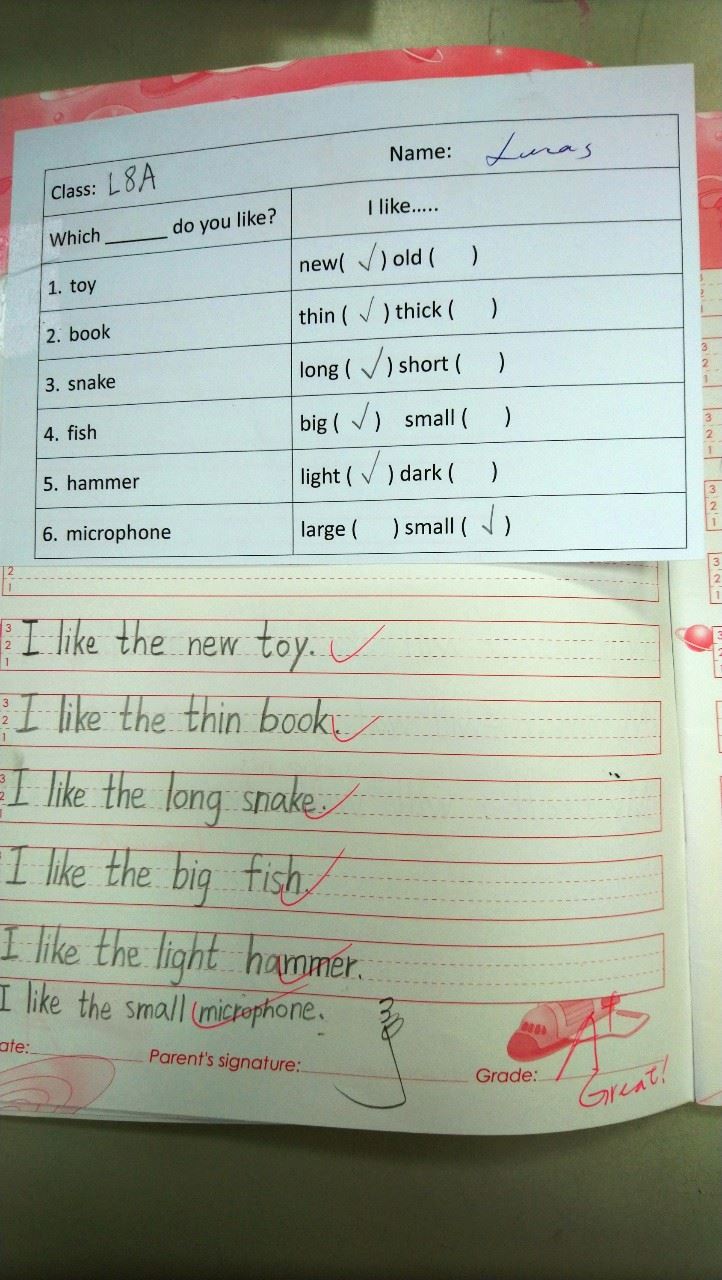 Class: L8A Name: Lucas
Which ______ do you like? I like.....
1. toy new( ✓ ) old ( )
2. book thin ( ✓ ) thick ( )
3. snake long ( ✓ ) short ( )
4. fish big ( ✓ ) small ( )
5. hammer light ( ✓ ) dark ( )
6. microphone large ( ) small ( ✓ )
2
1
3
2
1
I like the new toy.
3
2
1
I like the thin book.
3
2
1
I like the long snake.
I like the big fish.
I like the light hammer.
I like the small microphone.
Parent's signature:
Grade: A+
Great!